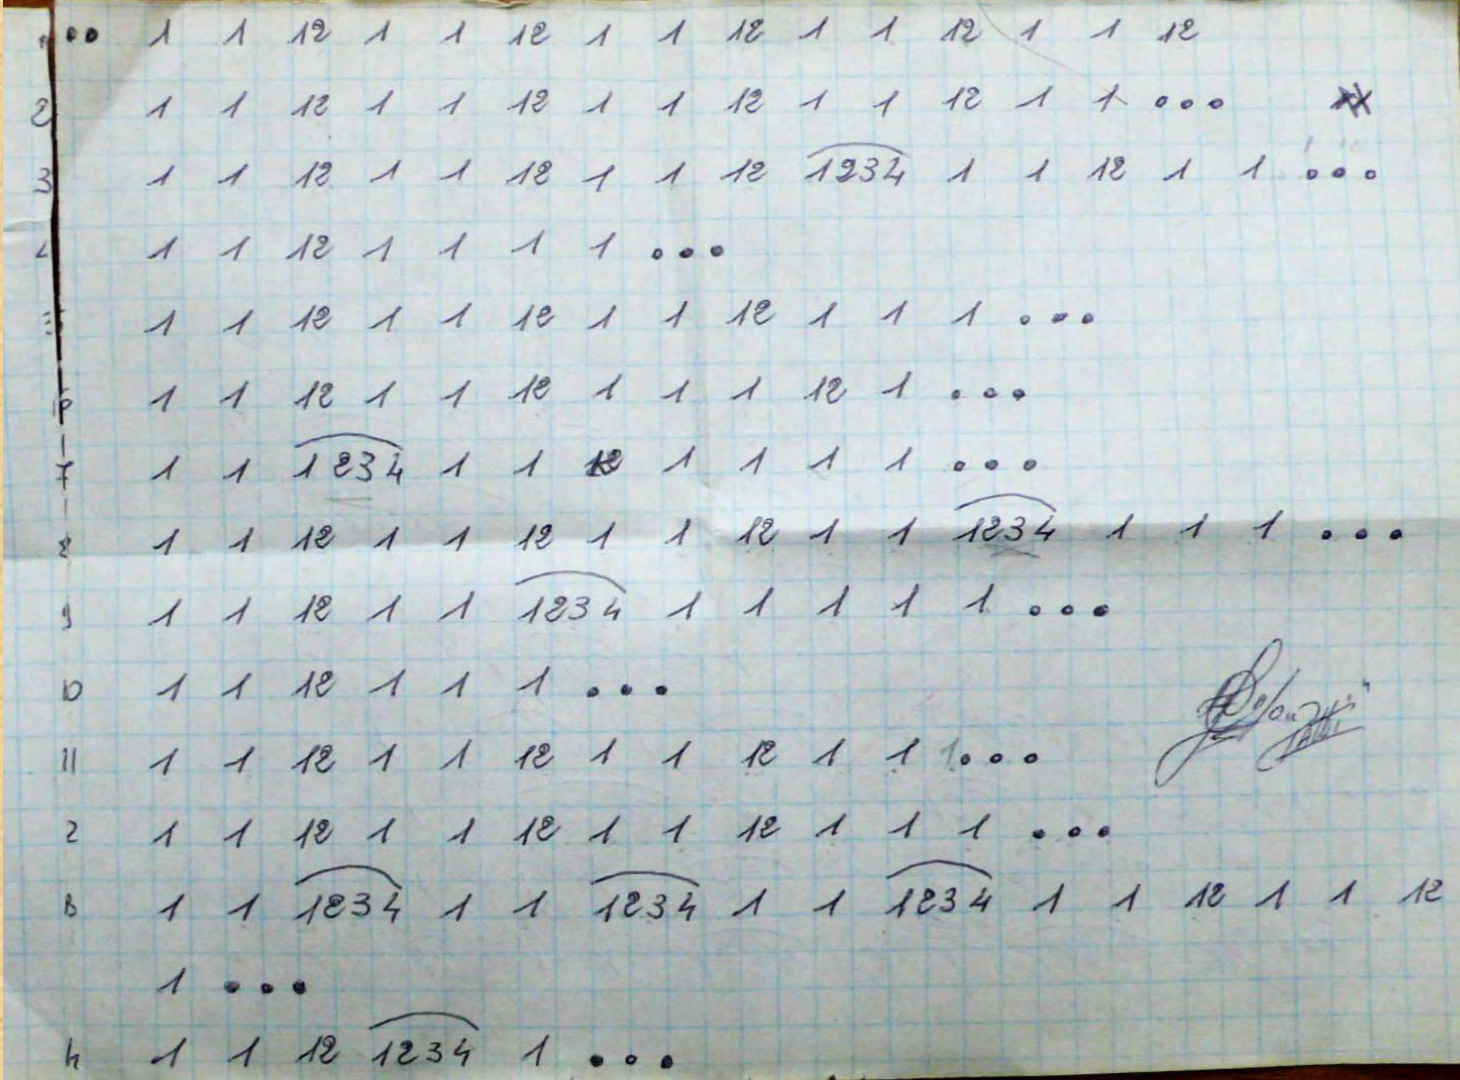 •• 1 1 12 1 1 12 1 1 12 1 1 12 1 1 12
2 1 1 12 1 1 12 1 1 12 1 1 12 1 1 •••
3 1 1 12 1 1 12 1 1 12 1234 1 1 12 1 1 •••
1 1 12 1 1 1 1 •••
1 1 12 1 1 12 1 1 12 1 1 1 •••
1 1 12 1 1 12 1 1 1 12 1 •••
7 1 1 1234 1 1 12 1 1 1 1 •••
8 1 1 12 1 1 12 1 1 12 1 1 1234 1 1 1 •••
9 1 1 12 1 1 1234 1 1 1 1 1 •••
10 1 1 12 1 1 1 •••
11 1 1 12 1 1 12 1 1 12 1 1 1•••
2 1 1 12 1 1 12 1 1 12 1 1 1 •••
1 1 1234 1 1 1234 1 1 1234 1 1 12 1 1 12
1 •••
1 1 12 1234 1 •••